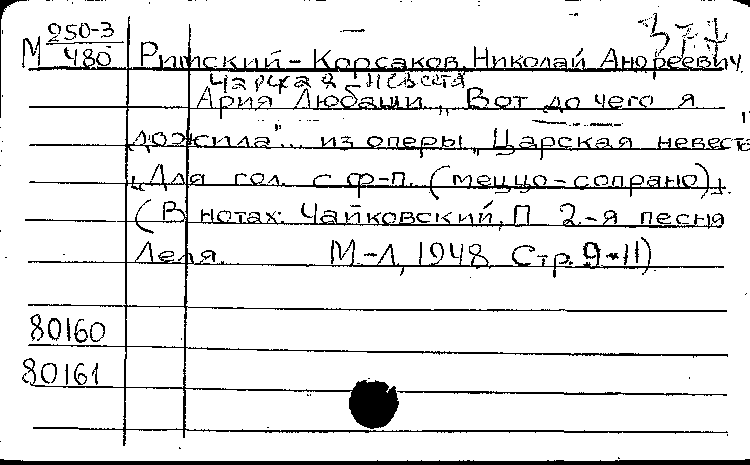 250-3
М 480 Римский-Корсаков, Николай Андреевич.
Царская невеста
Ария Любаши „Вот до чего я
дожила"... из оперы „Царская невеста"
„Для гол. с ф-п. (меццо-сопрано)".
(В нотах: Чайковский, П 2-я песня
Леля. М-Л, 1948 Стр. 9-11)
80160
80161